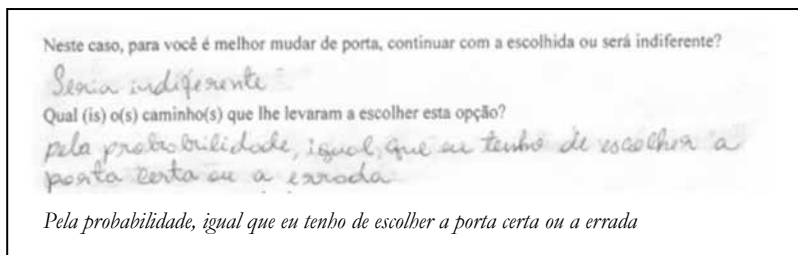 Neste caso, para você é melhor mudar de porta, continuar com a escolhida ou será indiferente?
Seria indiferente
Qual (is) o(s) caminho(s) que lhe levaram a escolher esta opção?
pela probrobrilidade, igual, que eu tenho de escolher a
porta certa ou a errada
Pela probabilidade, igual que eu tenho de escolher a porta certa ou a errada